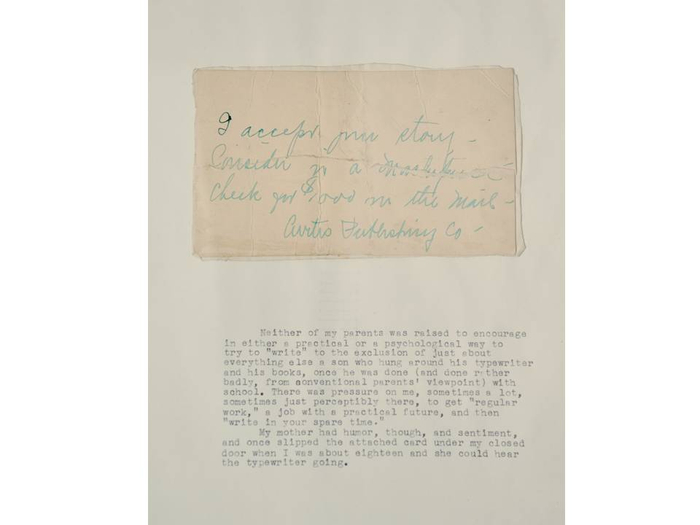 I accept your story -
Consider it a
Check for $1000 in the Mail -
Curtis Publishing Co -
Neither of my parents was raised to encourage
in either a practical or a psychological way to
try to "write" to the exclusion of just about
everything else a son who hung around his typewriter
and his books, once he was done (and done rather
badly, from conventional parents' viewpoint) with
school. There was pressure on me, sometimes a lot,
sometimes just perceptibly there, to get "regular
work," a job with a practical future, and then
"write in your spare time."
My mother had humor, though, and sentiment,
and once slipped the attached card under my closed
door when I was about eighteen and she could hear
the typewriter going.